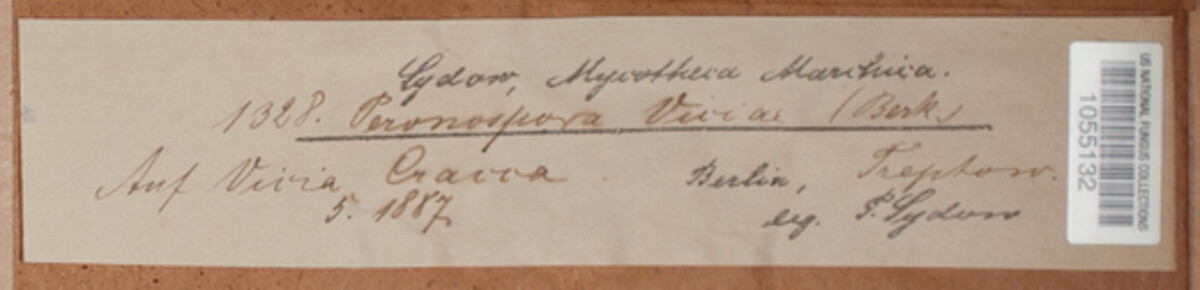 Sydow, Mycotheca Marchica.
1328. Peronospora Viciae (Berk.)
Auf Vicia Cracca
Berlin, Treptow.
5. 1887
leg. P. Sydow
US NATIONAL FUNGUS COLLECTIONS
1055132